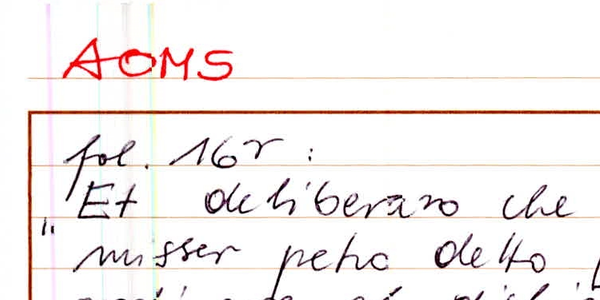 AOMS
fol. 16r :
"Et deliberaro che
misser petro detto